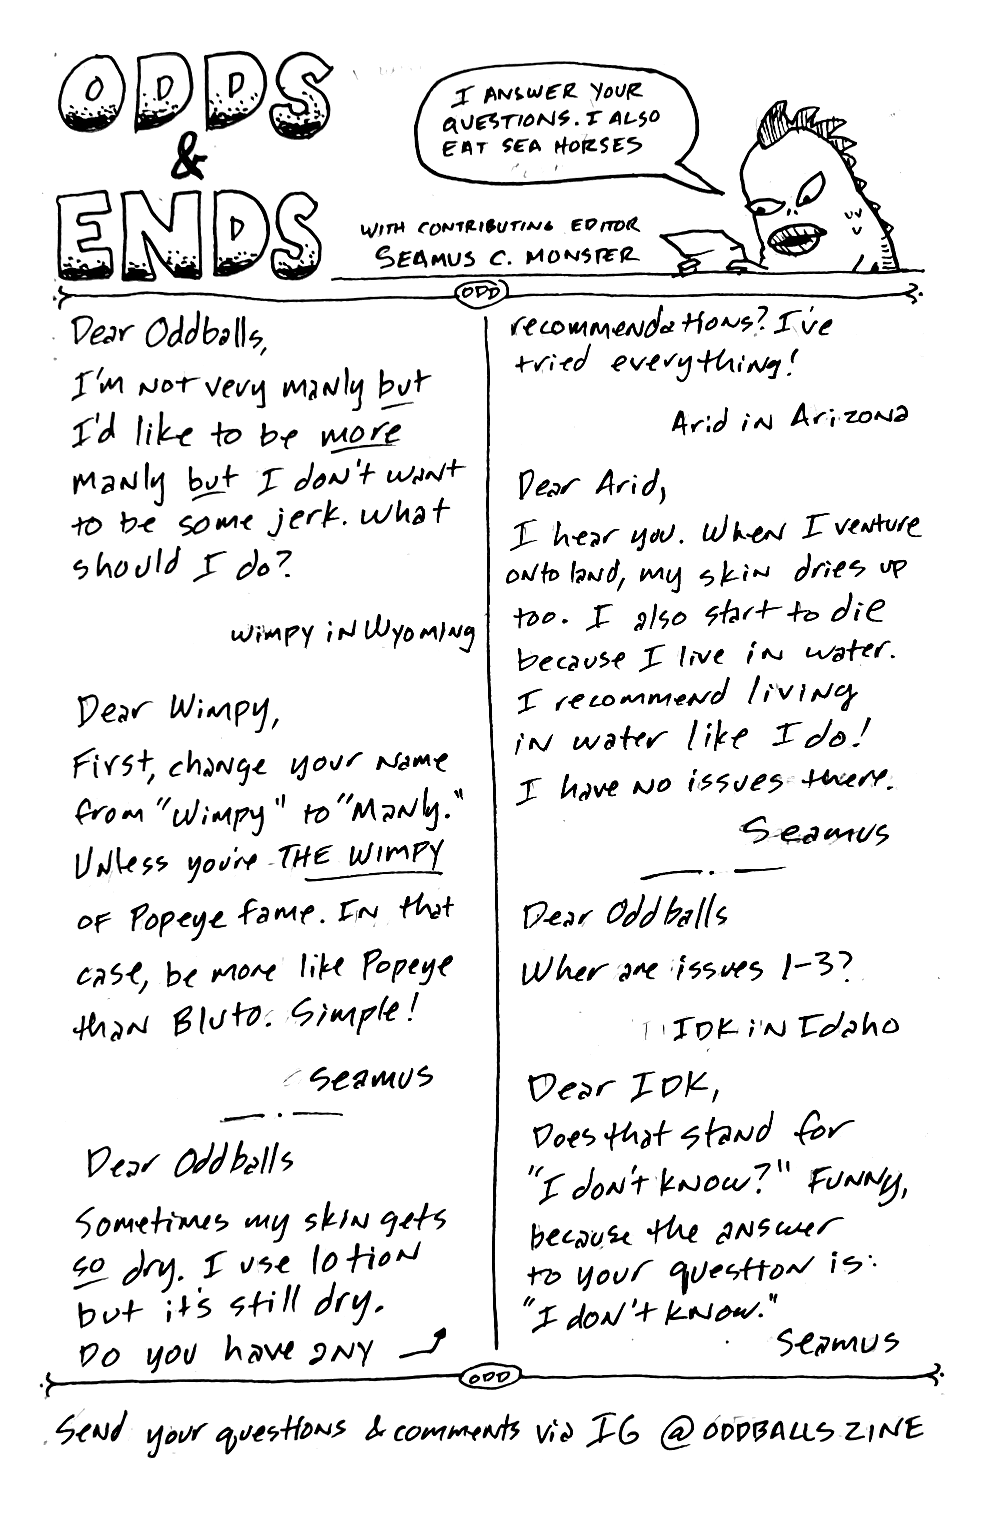 ODDS
&
ENDS
I ANSWER YOUR
QUESTIONS. I ALSO
EAT SEA HORSES
WITH CONTRIBUTING EDITOR
SEAMUS C. MONSTER
ODD
Dear Oddballs,
I'm not very manly but
I'd like to be more
manly but I don't want
to be some jerk. What
should I do?
Wimpy in Wyoming
Dear Wimpy,
First, change your name
from "Wimpy" to "Manly."
Unless you're THE WIMPY
of Popeye fame. In that
case, be more like Popeye
than Bluto. Simple!
Seamus
Dear Oddballs
Sometimes my skin gets
so dry. I use lotion
but it's still dry.
Do you have any
recommendations? I've
tried everything!
Arid in Arizona
Dear Arid,
I hear you. When I venture
onto land, my skin dries up
too. I also start to die
because I live in water.
I recommend living
in water like I do!
I have no issues there.
Seamus
Dear Oddballs
Wher are issues 1-3?
IDK in Idaho
Dear IDK,
Does that stand for
"I don't know?" Funny,
because the answer
to your question is:
"I don't know."
Seamus
ODD
Send your questions & comments via IG @ODDBALLSZINE